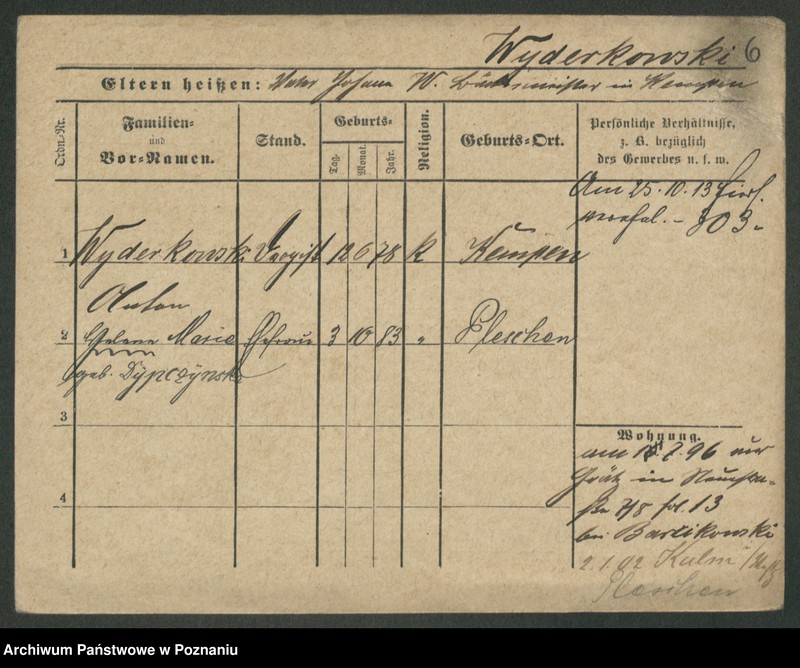 Wyderkowski 6
Eltern heißen: Vater Johann W. Bäckermeister in Kempen
Ordn.-Nr.
Familien-
und
Vor-Namen.
Stand.
Geburts-
Tag.
Monat.
Jahr.
Religion.
Geburts-Ort.
Persönliche Verhältnisse,
z. B. bezüglich
des Gewerbes u. s. w.
Am 25.10.13
303.
1 Wyderkowski Drogist 12 6 78 K Kempen
Anton
2 Helene Marie Ehefrau 3 10 83 " Pleschen
geb.
3
4
Wohnung.
am 7.96 von
Grätz in
48 fol. 13
bei Bartikowski
2.1.02 Kulm
Pleschen
Archiwum Państwowe w Poznaniu